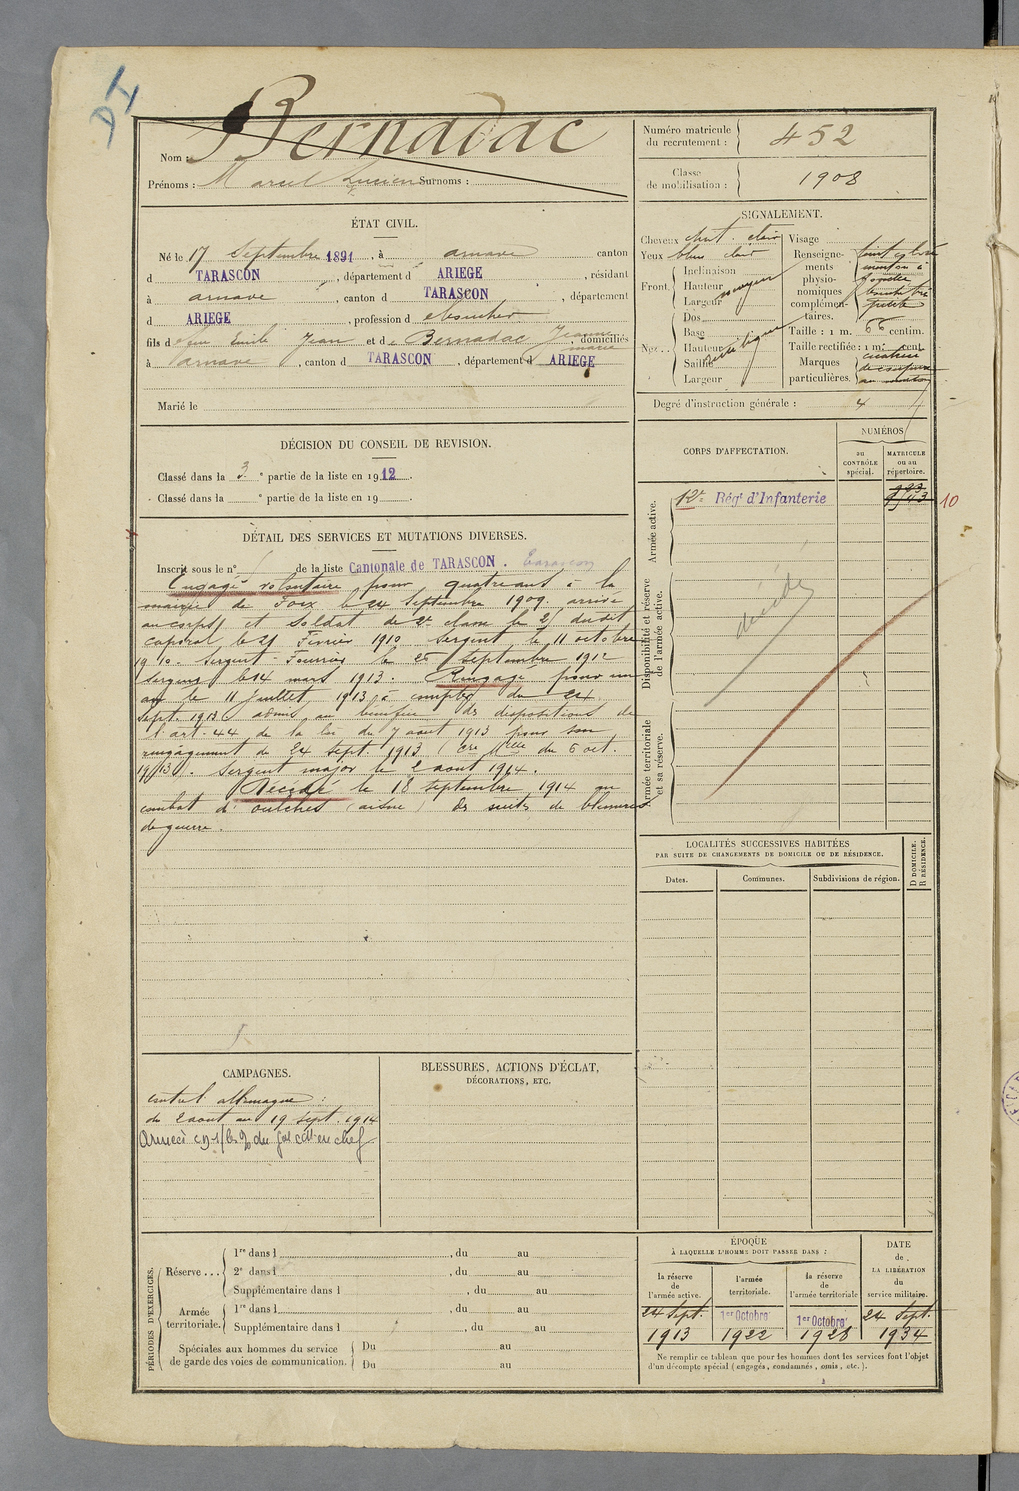 DI
Nom : Bernadac
Prénoms : Marcel Lucien Surnoms :
Numéro matricule du recrutement : 452
Classe de mobilisation : 1908
ÉTAT CIVIL.
Né le 17 Septembre 1891, à arnave canton
d TARASCON, département d ARIEGE, résidant
à arnave, canton d TARASCON, département
d ARIEGE, profession d
fils d feu Emile Jean et d e Bernadac Jeanne marie, domiciliés
à arnave, canton d TARASCON, département d ARIEGE
Marié le
SIGNALEMENT.
Cheveux chat. clair
Yeux bleu clair
Front. Inclinaison
Hauteur moyen
Largeur
Nez . . Dos
Base
Hauteur rectiligne
Saillie
Largeur
Visage
Renseignements physionomiques complémentaires.
menton à
fossette
bouche
petite
Taille : 1 m. 66 centim.
Taille rectifiée : 1 m. cent.
Marques particulières.
au menton
Degré d'instruction générale : 4
DÉCISION DU CONSEIL DE REVISION.
Classé dans la 3 e partie de la liste en 1912.
Classé dans la e partie de la liste en 19 .
DÉTAIL DES SERVICES ET MUTATIONS DIVERSES.
Inscrit sous le n° de la liste Cantonale de TARASCON. Tarascon
Engagé volontaire pour quatre ans à la
mairie de Foix le 24 Septembre 1909. arrivé
au corps et Soldat de 2e classe le 25 dudit
caporal le 21 Février 1910 Sergent le 11 octobre
1910. Sergent Fourrier le 25 Septembre 1912
Sergent le 14 mars 1913. Rengagé pour un
an le 11 Juillet 1913 à compter du 24
Sept. 1913 admis au bénéfice des dispositions de
l'art. 44 de la loi du 7 aout 1913 pour son
rengagement du 24 sept. 1913 ( du 6 oct.
1913). Sergent major le 2 aout 1914.
Décédé le 18 septembre 1914 au
combat d'oulches (aisne) des suites de blessures
de guerre.
CORPS D'AFFECTATION.
NUMÉROS
au CONTRÔLE spécial.
MATRICULE ou au répertoire.
Armée active.
12e Rég.t d'Infanterie
10
Disponibilité et réserve de l'armée active.
décédé
Armée territoriale et sa réserve.
LOCALITÉS SUCCESSIVES HABITÉES
PAR SUITE DE CHANGEMENTS DE DOMICILE OU DE RÉSIDENCE.
Dates.
Communes.
Subdivisions de région.
D DOMICILE.
R RÉSIDENCE.
CAMPAGNES.
contre l'allemagne :
du 2 aout au 19 sept. 1914
Armées du Gal Cdt en chef
BLESSURES, ACTIONS D'ÉCLAT,
DÉCORATIONS, ETC.
PÉRIODES D'EXERCICES.
Réserve . . . 1re dans l , du au
2e dans l , du au
Supplémentaire dans l , du au
Armée territoriale. 1re dans l , du au
Supplémentaire dans l , du au
Spéciales aux hommes du service de garde des voies de communication. Du au
Du au
ÉPOQUE
À LAQUELLE L'HOMME DOIT PASSER DANS :
la réserve de l'armée active.
l'armée territoriale.
la réserve de l'armée territoriale
DATE de LA LIBÉRATION du service militaire.
24 Sept. 1913
1er Octobre 1922
1er Octobre 1928
24 Sept. 1934
Ne remplir ce tableau que pour les hommes dont les services font l'objet
d'un décompte spécial (engagés, condamnés, omis, etc.).